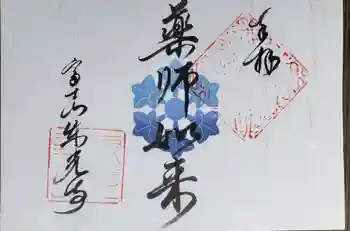 奉拝
薬師如来
富士山朱光寺